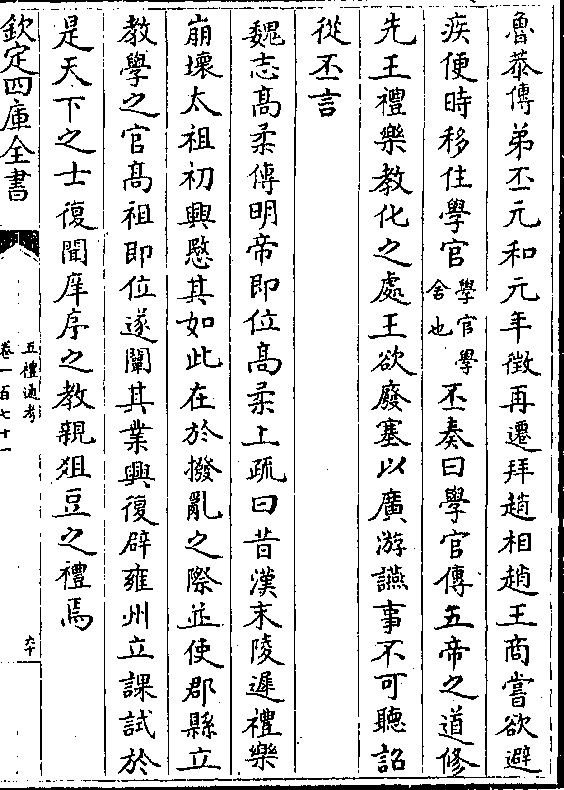 魯恭傳弟丕元和元年徴再遷拜趙相趙王商嘗欲避
疾便時移住學官學官學舍也丕奏曰學官傳五帝之道修
先王禮樂教化之處王欲廢塞以廣游讌事不可聽詔
從丕言
魏志髙柔傳明帝即位髙柔上疏曰昔漢末陵遲禮樂
崩壞太祖初興愍其如此在於撥亂之際並使郡縣立
教學之官髙祖即位遂闡其業興復辟雍州立課試於
是天下之士復聞庠序之教親俎豆之禮焉
欽定四庫全書
五禮通考
卷一百七十一
六十